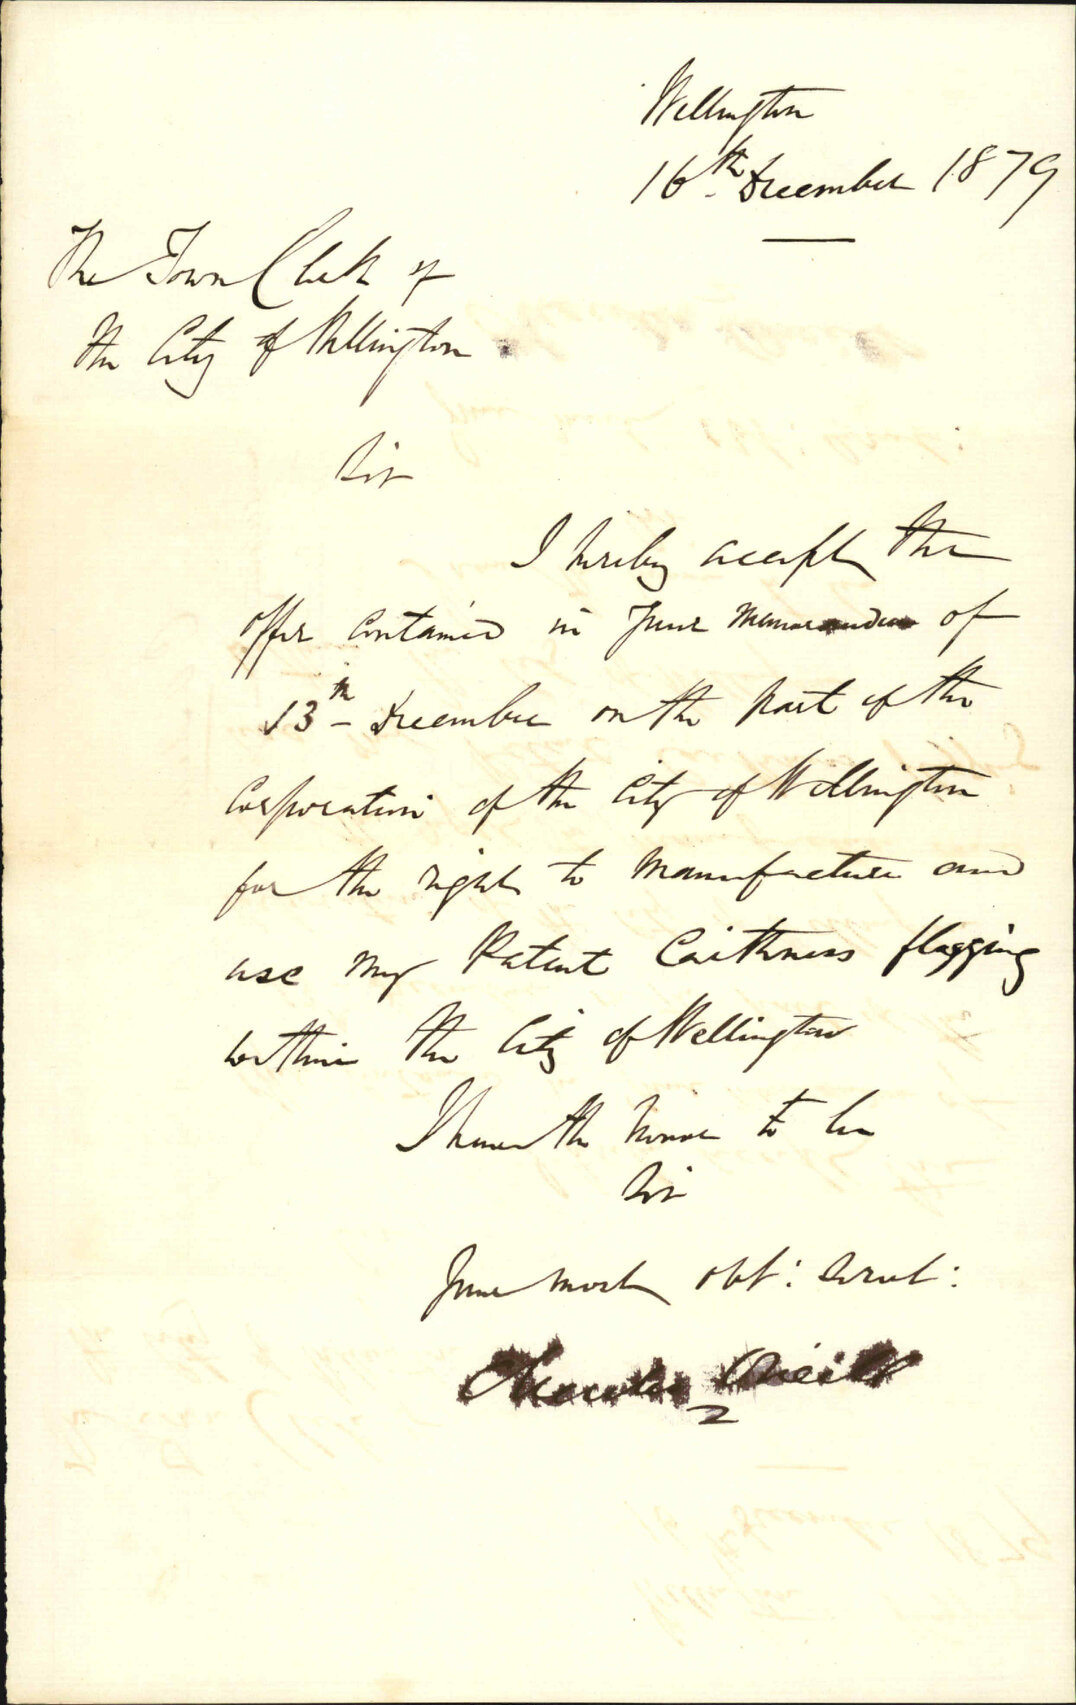 Wellington
16th December 1879
The Town Clerk of
the City of Wellington
Sir
I hereby accept the
offer contained in your memorandum of
13th December on the part of the
Corporation of the City of Wellington
for the right to manufacture and
use my Patent Caithness flagging
within the City of Wellington
I have the honor to be
Sir
Your most obt: Servt:
Charles Oneill